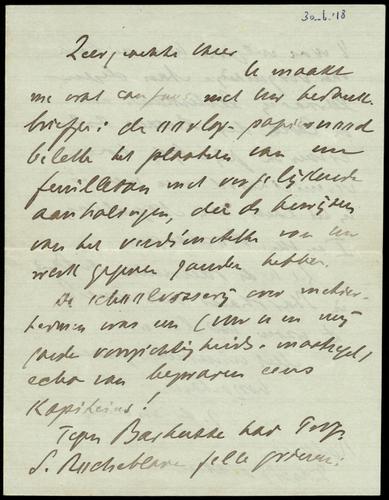 30.6.'18
Zeergeachte Heer
U maakt
me wat confuus met Uw bedank-
briefen: de oorlogs-papiernood
belette het plaatsen van een
feuilleton met vergelijkende
aanhalingen, die de bewijzen
van het verdienstelijke van Uw
werk gegeven zouden hebben.
De schoolvosserij over
was een (voor U en mij
goede voorzichtigheids-maatregel,
echo van bezwaren eens
Kapiteins!
Tegen Barbusse had Prof.
S. fella